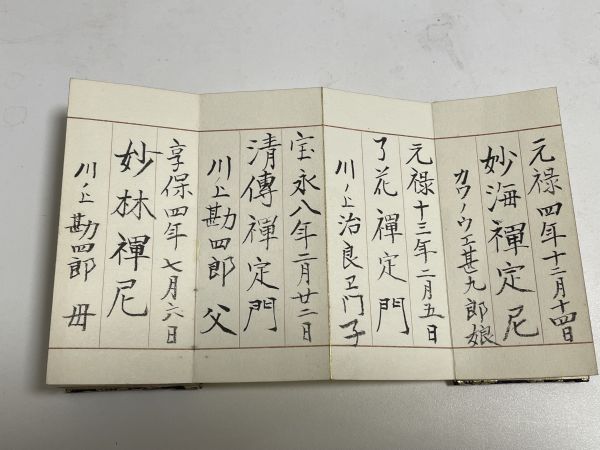 元禄四年十二月十四日
妙海禅定尼
カワノウエ甚九郎娘
元禄十三年二月五日
了花禅定門
川ノ上治良ヱ门子
宝永八年二月廿二日
清傳禅定門
川ノ上勘四郎 父
享保四年七月六日
妙林禅尼
川ノ上勘四郎 母